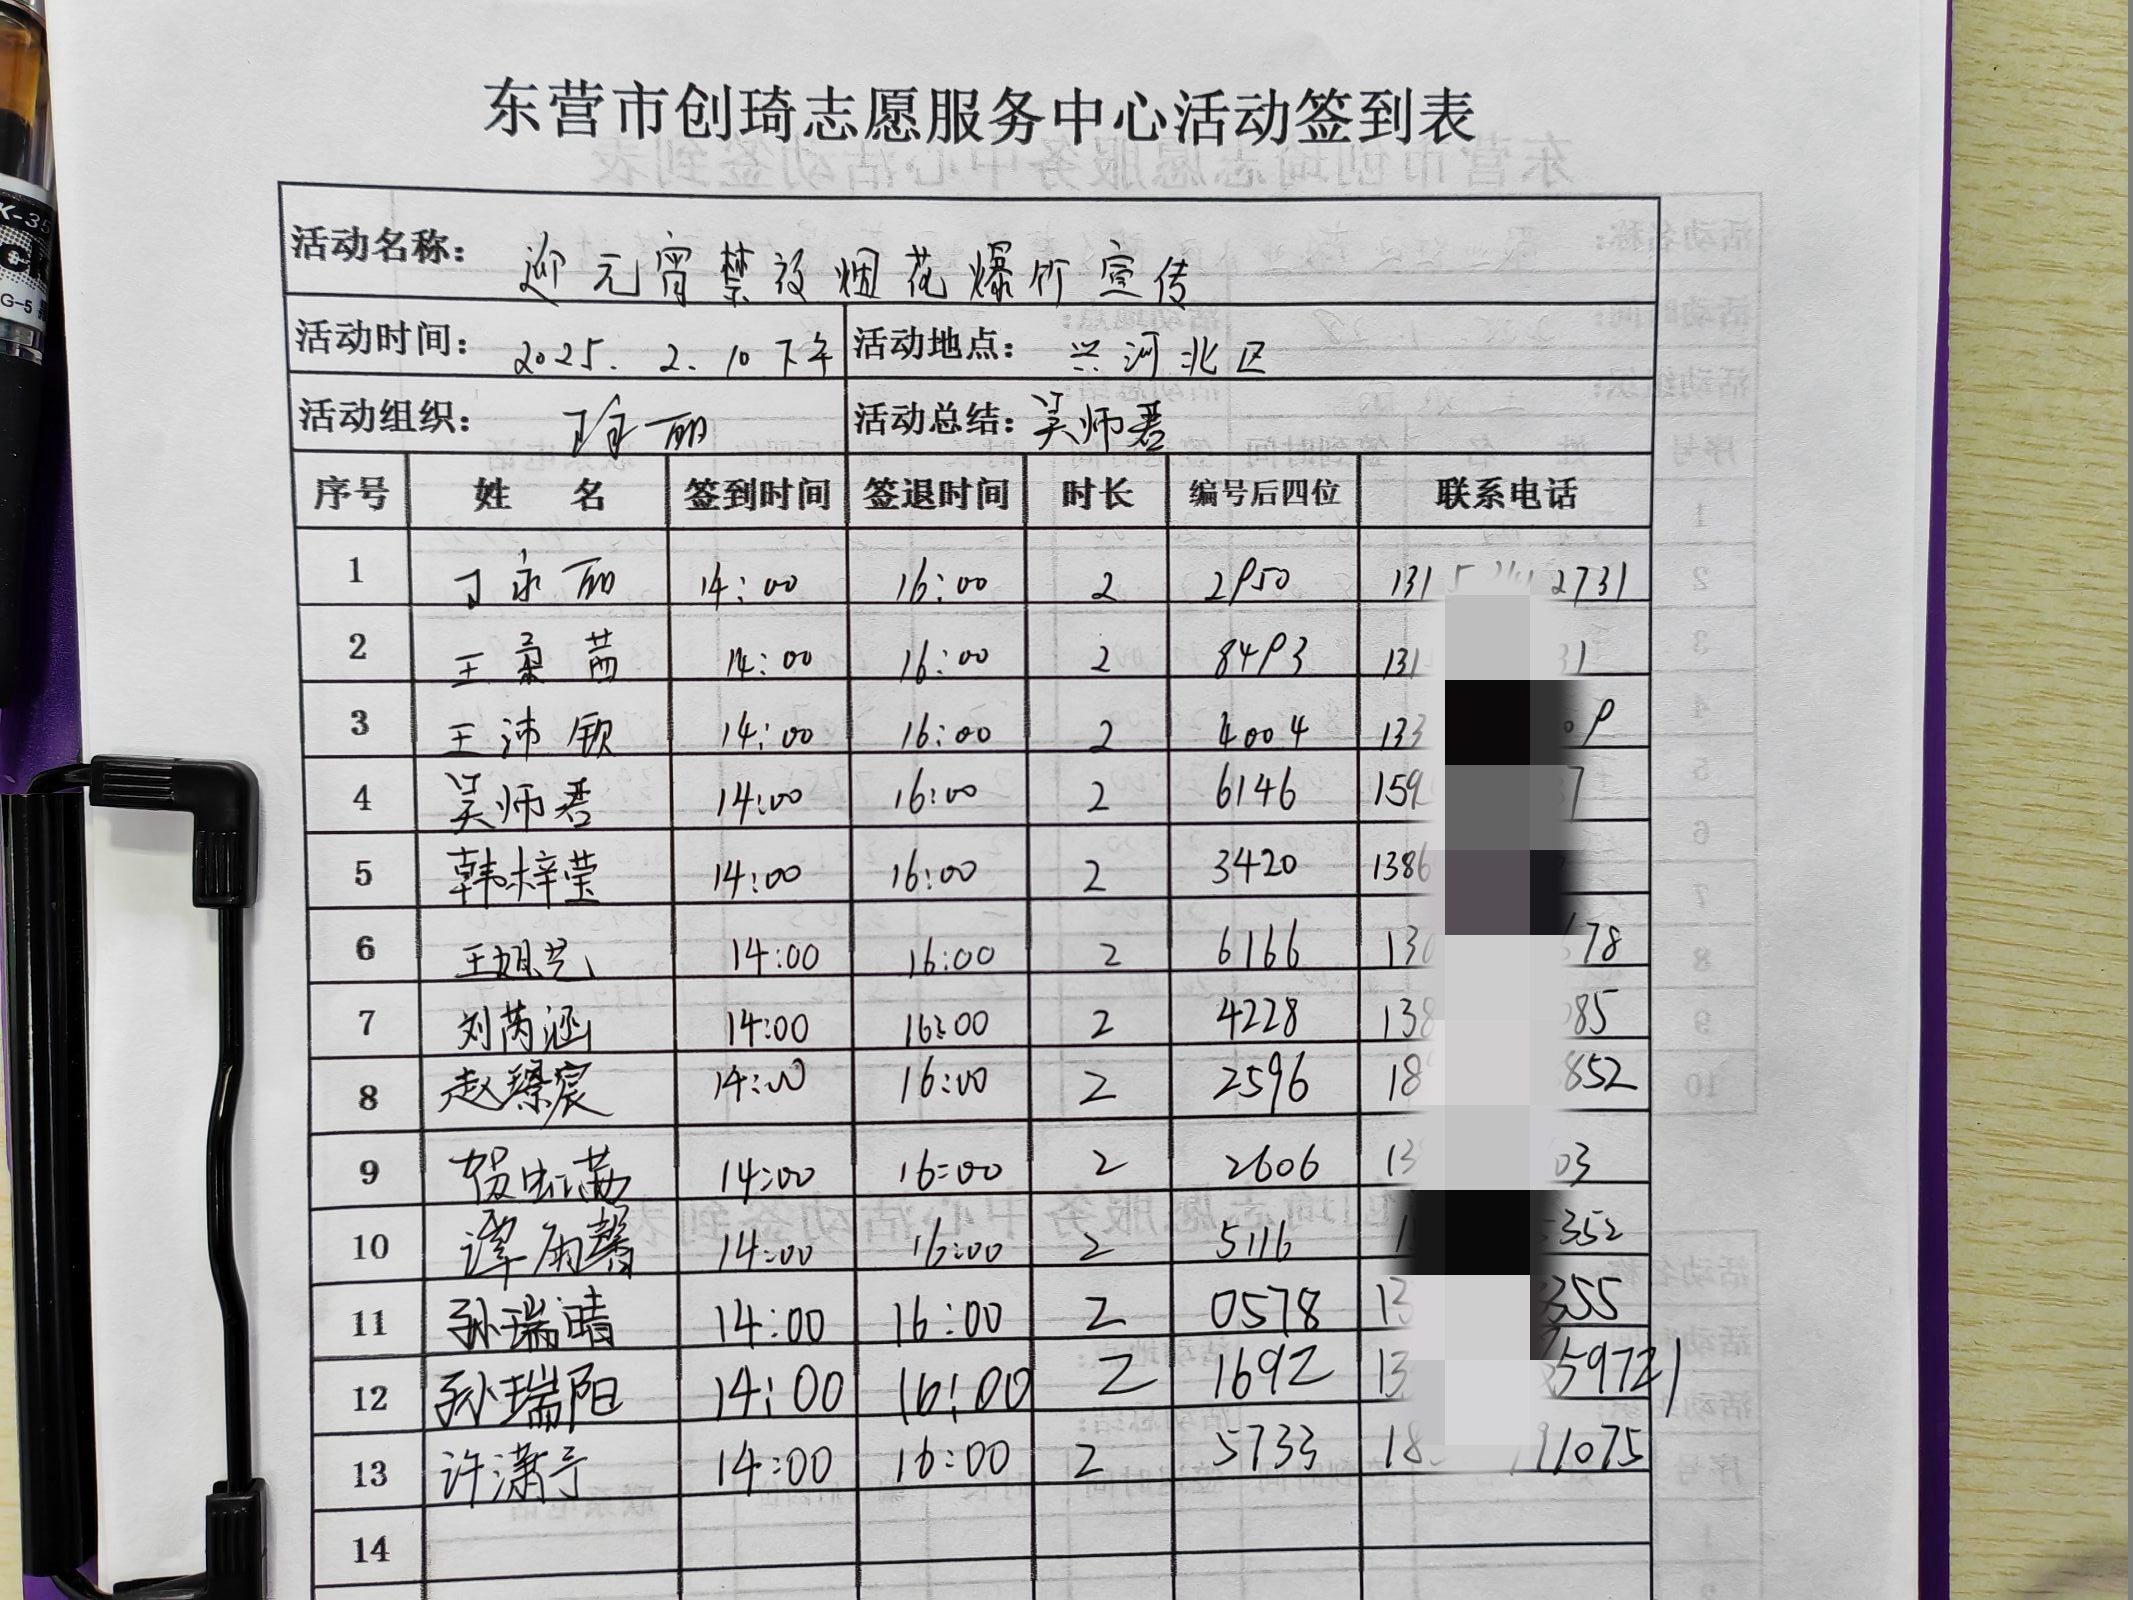 东营市创琦志愿服务中心活动签到表
活动名称： 迎元宵禁放烟花爆竹宣传
活动时间： 2025. 2. 10 下午 活动地点： 兴河北区
活动组织： 丽 活动总结： 吴师君
序号 姓 名 签到时间 签退时间 时长 编号后四位 联系电话
1 丁永丽 14:00 16:00 2 2950 131 2731
2 王 茜 14:00 16:00 2 8493 131 31
3 王沛钦 14:00 16:00 2 4004 133 09
4 吴师君 14:00 16:00 2 6146 159 37
5 韩梓莹 14:00 16:00 2 3420 1386
6 王 艺 14:00 16:00 2 6166 130 78
7 刘芮涵 14:00 16:00 2 4228 138 085
8 赵璟宸 14:00 16:00 2 2596 18 852
9 贺 14:00 16:00 2 2606 13 03
10 谭雨馨 14:00 16:00 2 5116 1 5352
11 孙瑞晴 14:00 16:00 2 0578 13 355
12 孙瑞阳 14:00 16:00 2 1692 13 59721
13 许潇予 14:00 16:00 2 5733 18 91075
14